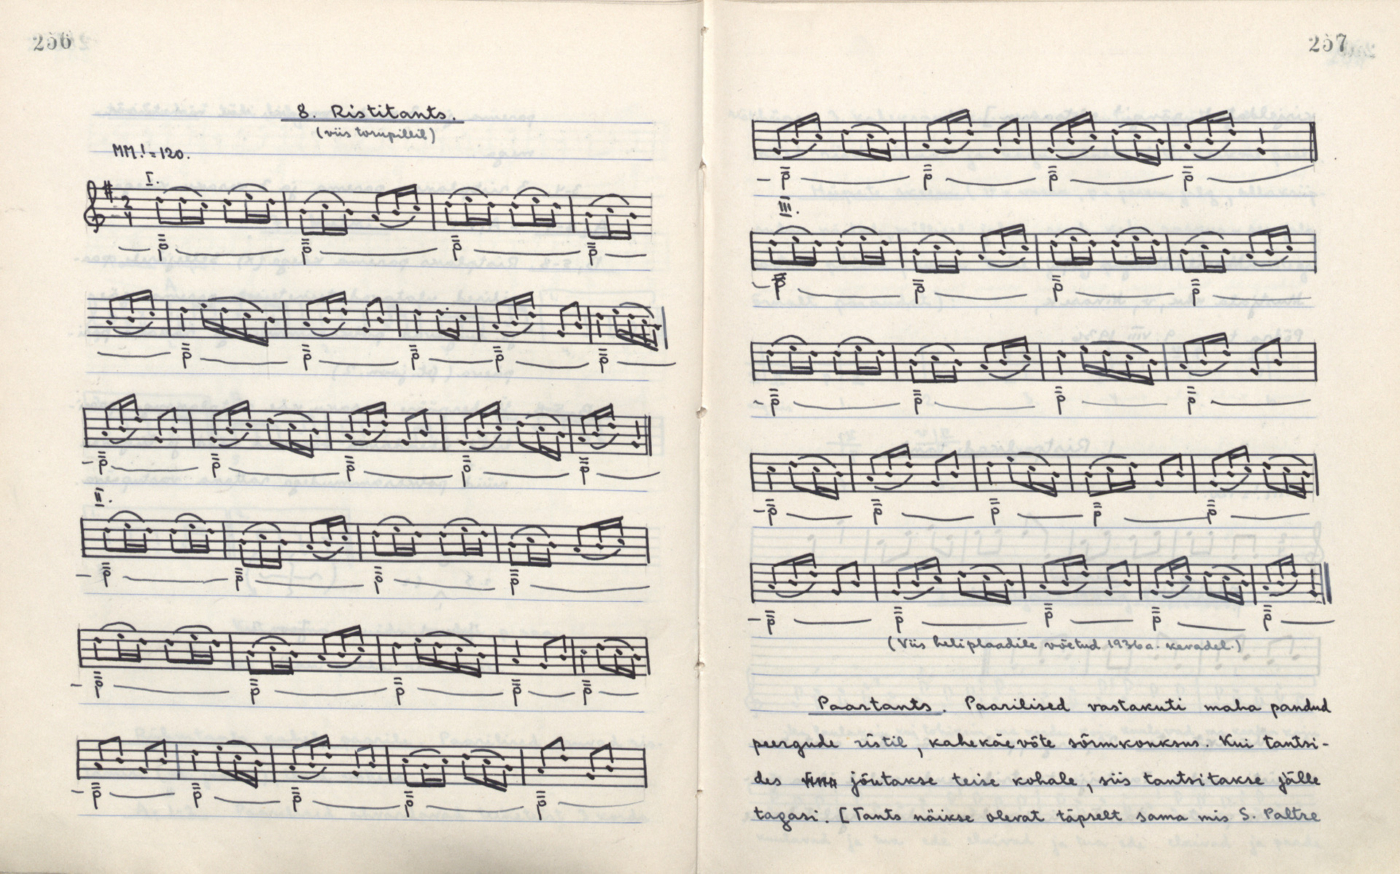 256
8. Ristitants.
(viis torupillil)
MM. = 120.
I.
2
4
II.
257
III.
(Viis heliplaadile võetud 1936 a. kevadel.)
Paartants. Paarilised vastakuti maha pandud
peergude ristil, kahekäe võte sõrmkonksus. Kui tantsi-
des jõutakse teise kohale, siis tantsitakse jälle
tagasi. [Tants näikse olevat täpselt sama mis S. Paltre